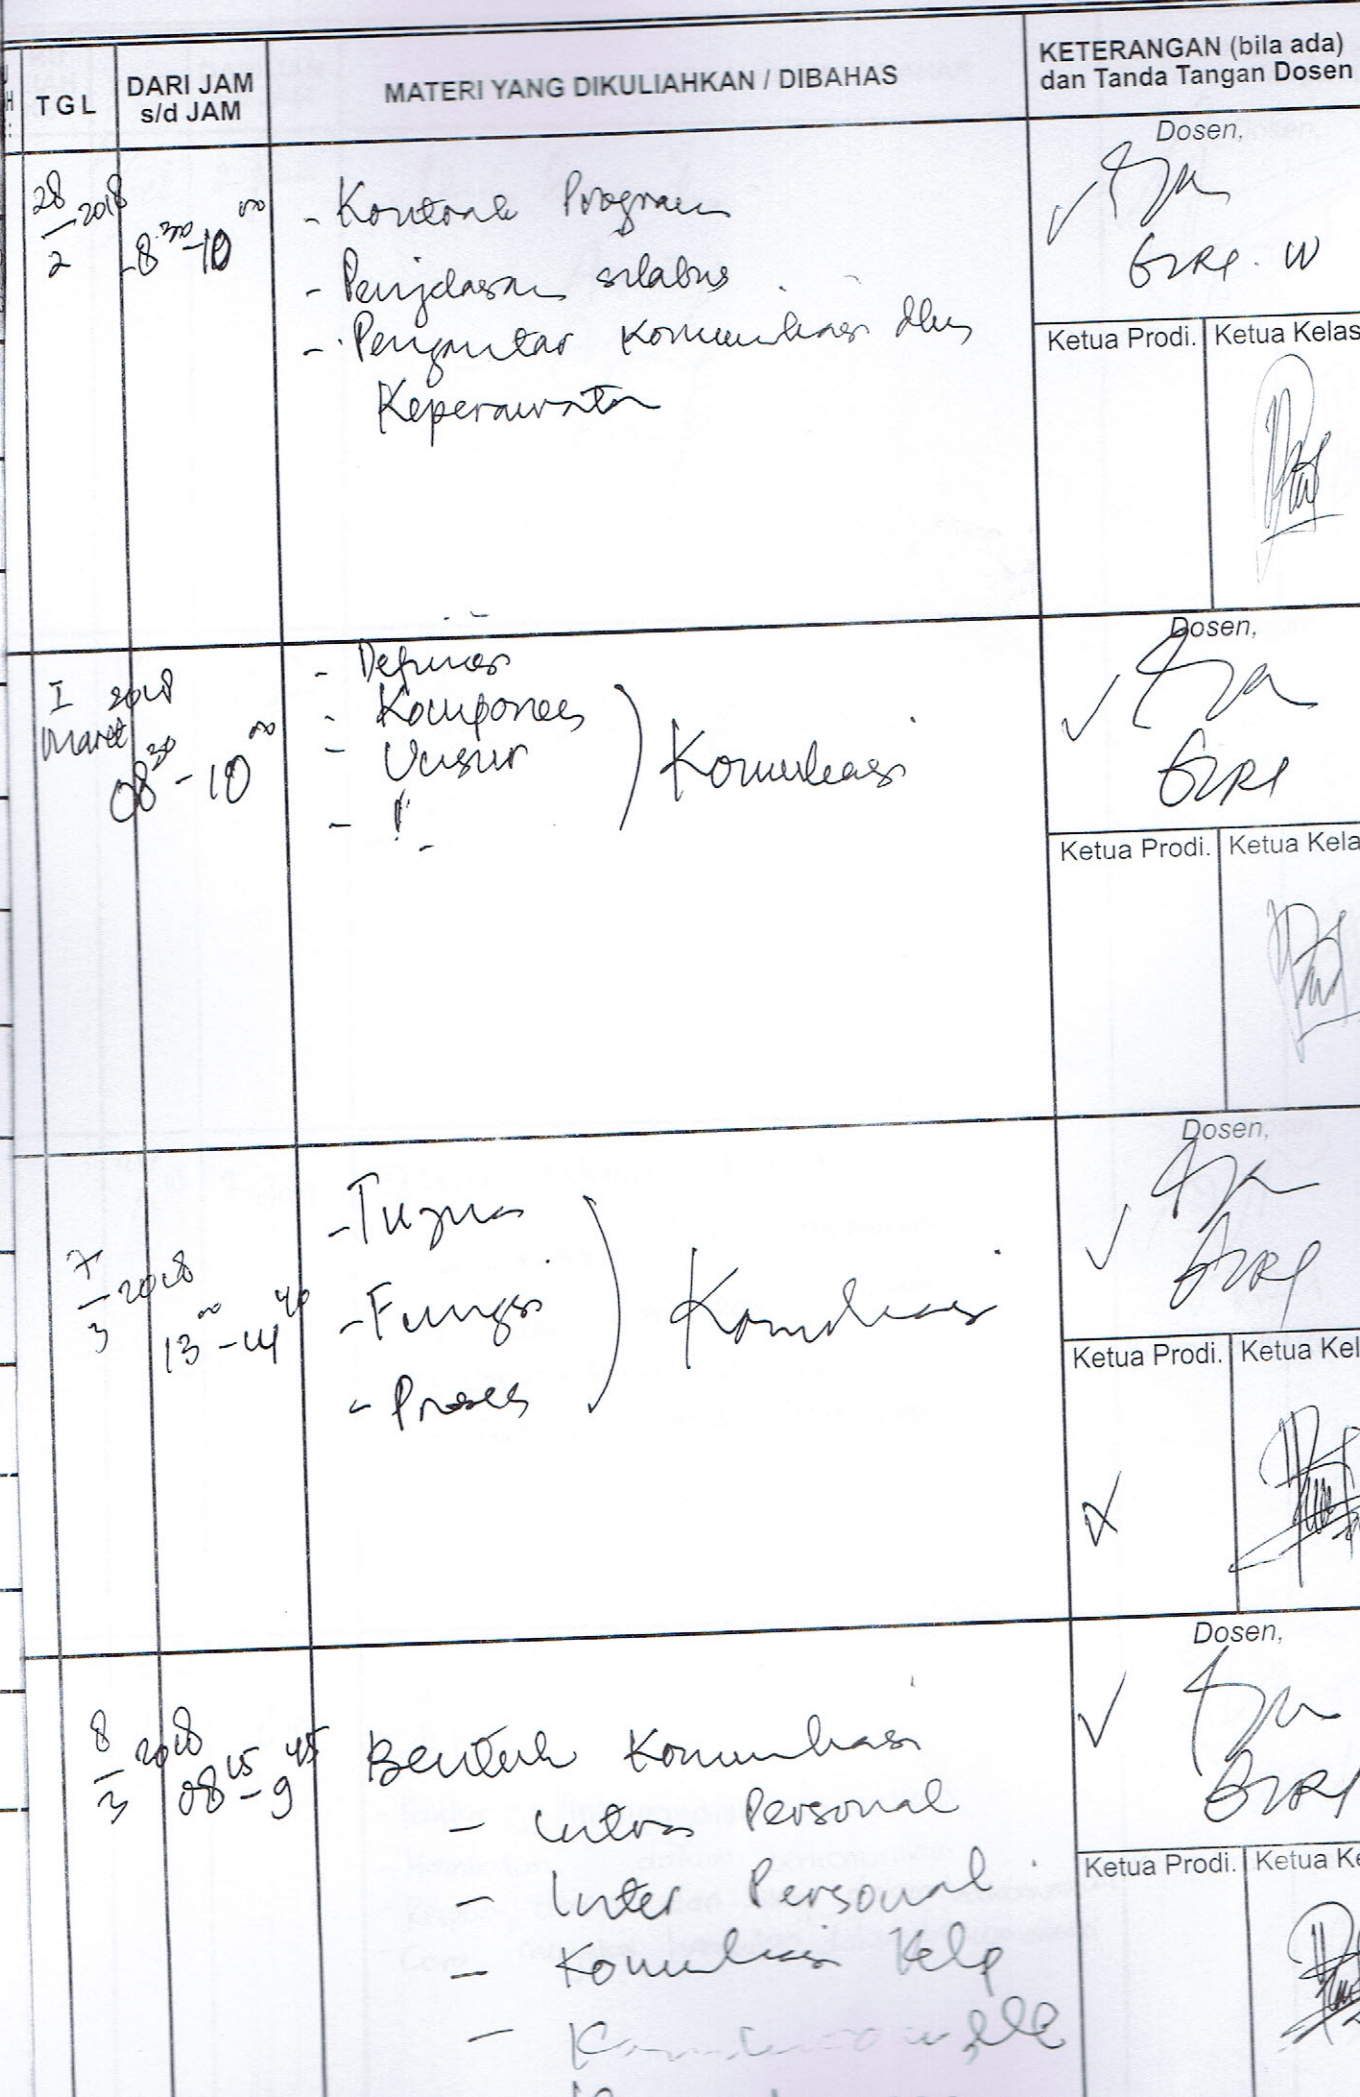 TGL
DARI JAM
s/d JAM
MATERI YANG DIKULIAHKAN / DIBAHAS
KETERANGAN (bila ada)
dan Tanda Tangan Dosen
28/2 2018
8 30 - 10 00
- Kontrak Program
- Penjelasan silabus
- Pengantar Komunikasi dlm
Keperawatan
Dosen,
Ketua Prodi.
Ketua Kelas
1 2018
Maret
08 30 - 10 00
- Definisi
- Komponen
- Unsur
Komunikasi
Dosen,
Ketua Prodi.
Ketua Kela
7/3 2018
13 00 - 14 40
- Tujuan
- Fungsi
- Proses
Komunikasi
Dosen,
Ketua Prodi.
Ketua Kel
8/3 2018
08 15 - 9 45
Bentuk Komunikasi
- Intra Personal
- Inter Personal
- Komunikasi Kelp
Dosen,
Ketua Prodi.
Ketua Ke